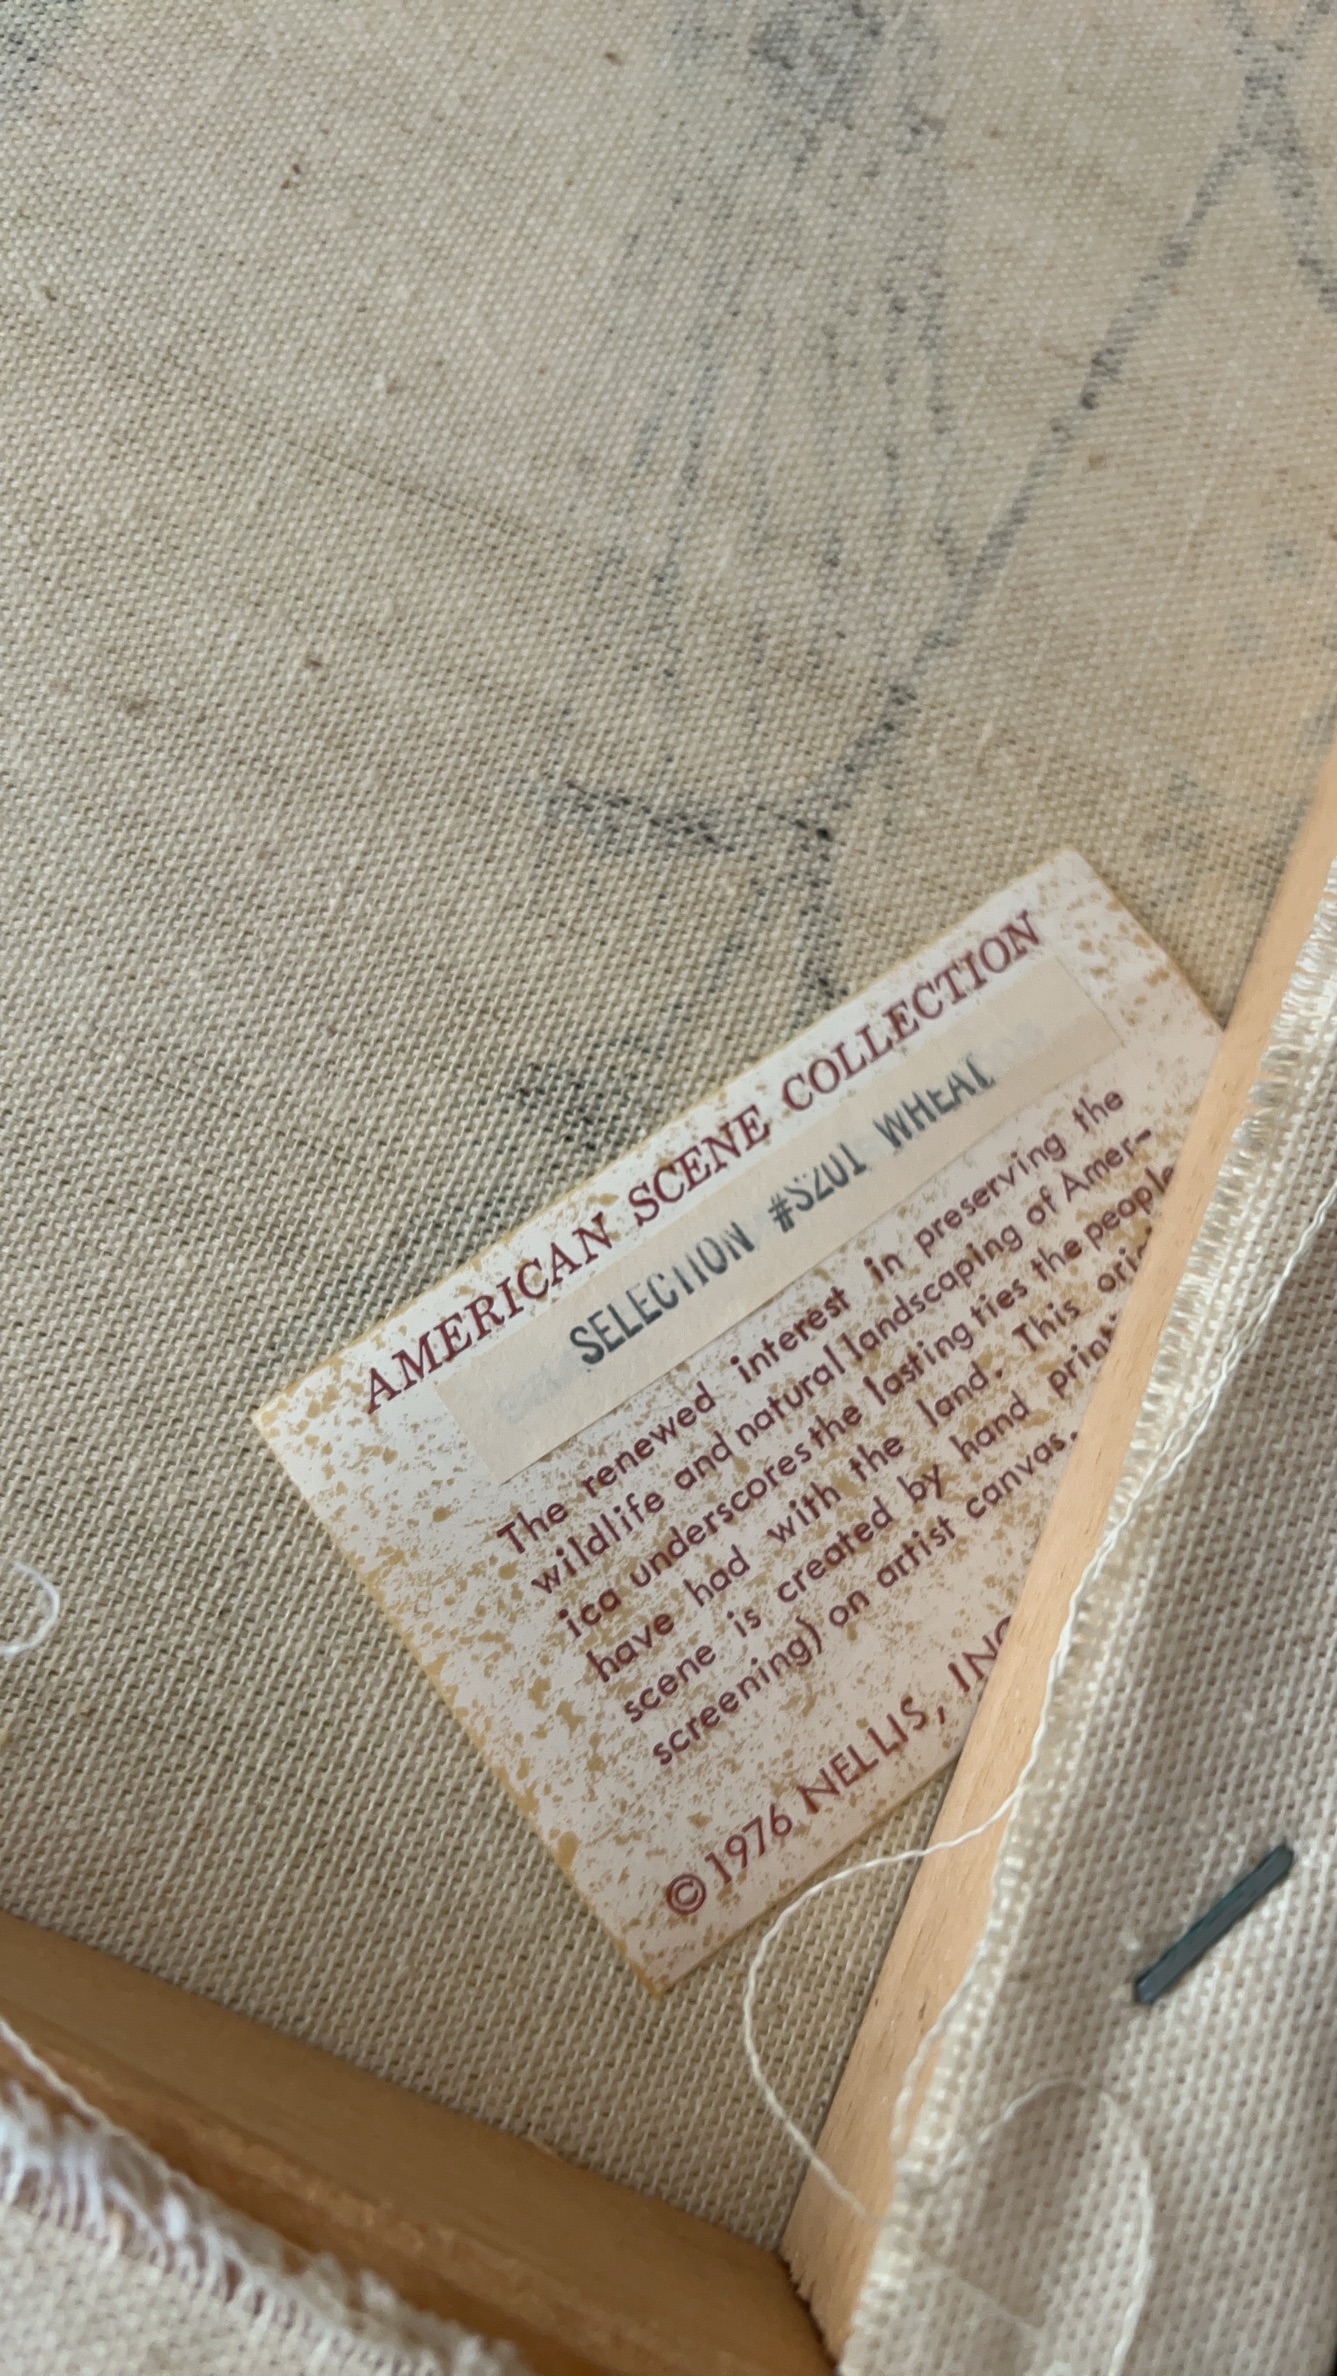 AMERICAN SCENE COLLECTION
SELECTION #S201 WHEAT
The renewed interest in preserving the
wildlife and natural landscaping of Amer-
ica underscores the lasting ties the people
have had with the land. This
scene is created by hand
screening) on artist canvas.
© 1976 NELLIS,